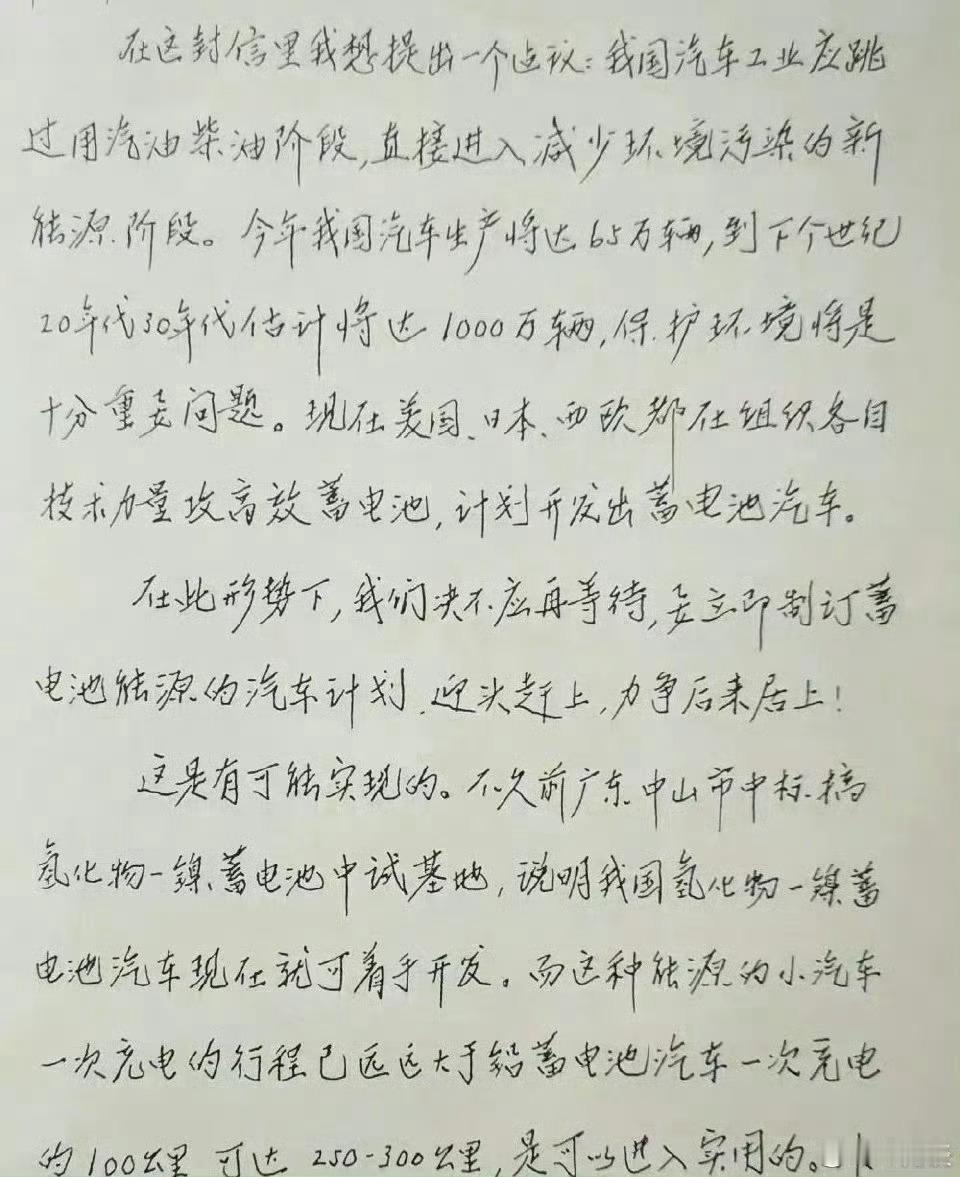 在这封信里我想提出一个建议：我国汽车工业应跳
过用汽油柴油阶段，直接进入减少环境污染的新
能源阶段。今年我国汽车生产将达65万辆，到下个世纪
20年代30年代估计将达1000万辆，保护环境将是
十分重要问题。现在美国、日本、西欧都在组织各自
技术力量攻高效蓄电池，计划开发出蓄电池汽车。
在此形势下，我们决不应再等待，要立即制订蓄
电池能源的汽车计划，迎头赶上，力争后来居上！
这是有可能实现的。不久前广东中山市中标搞
氢化物-镍蓄电池中试基地，说明我国氢化物-镍蓄
电池汽车现在就可着手开发。而这种能源的小汽车
一次充电的行程已远远大于铅蓄电池汽车一次充电
的100公里，可达250-300公里，是可以进入实用的。